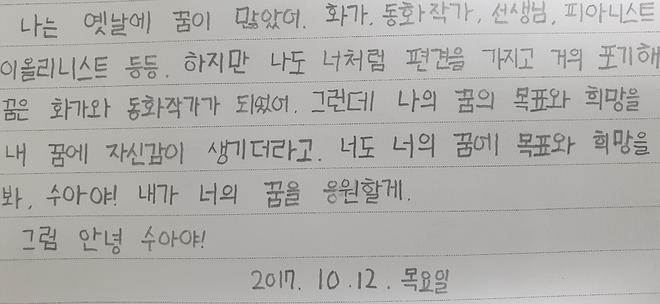 나는 옛날에 꿈이 많았어. 화가, 동화작가, 선생님, 피아니스트
이올리니스트 등등. 하지만 나도 너처럼 편견을 가지고 거의 포기해
꿈은 화가와 동화작가가 되었어. 그런데 나의 꿈의 목표와 희망을
내 꿈에 자신감이 생기더라고. 너도 너의 꿈에 목표와 희망을
봐, 수아야! 내가 너의 꿈을 응원할게.
그럼 안녕 수아야!
2017. 10. 12. 목요일